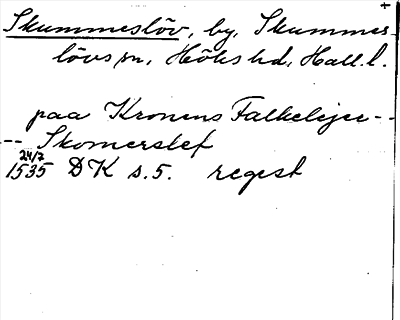 Skummeslöv, by, Skummes-
lövs sn, Höks hd, Hall. l.
paa Kronens Falkelejee --
-- Skomerslef
24/7
1535 DK s. 5. regest